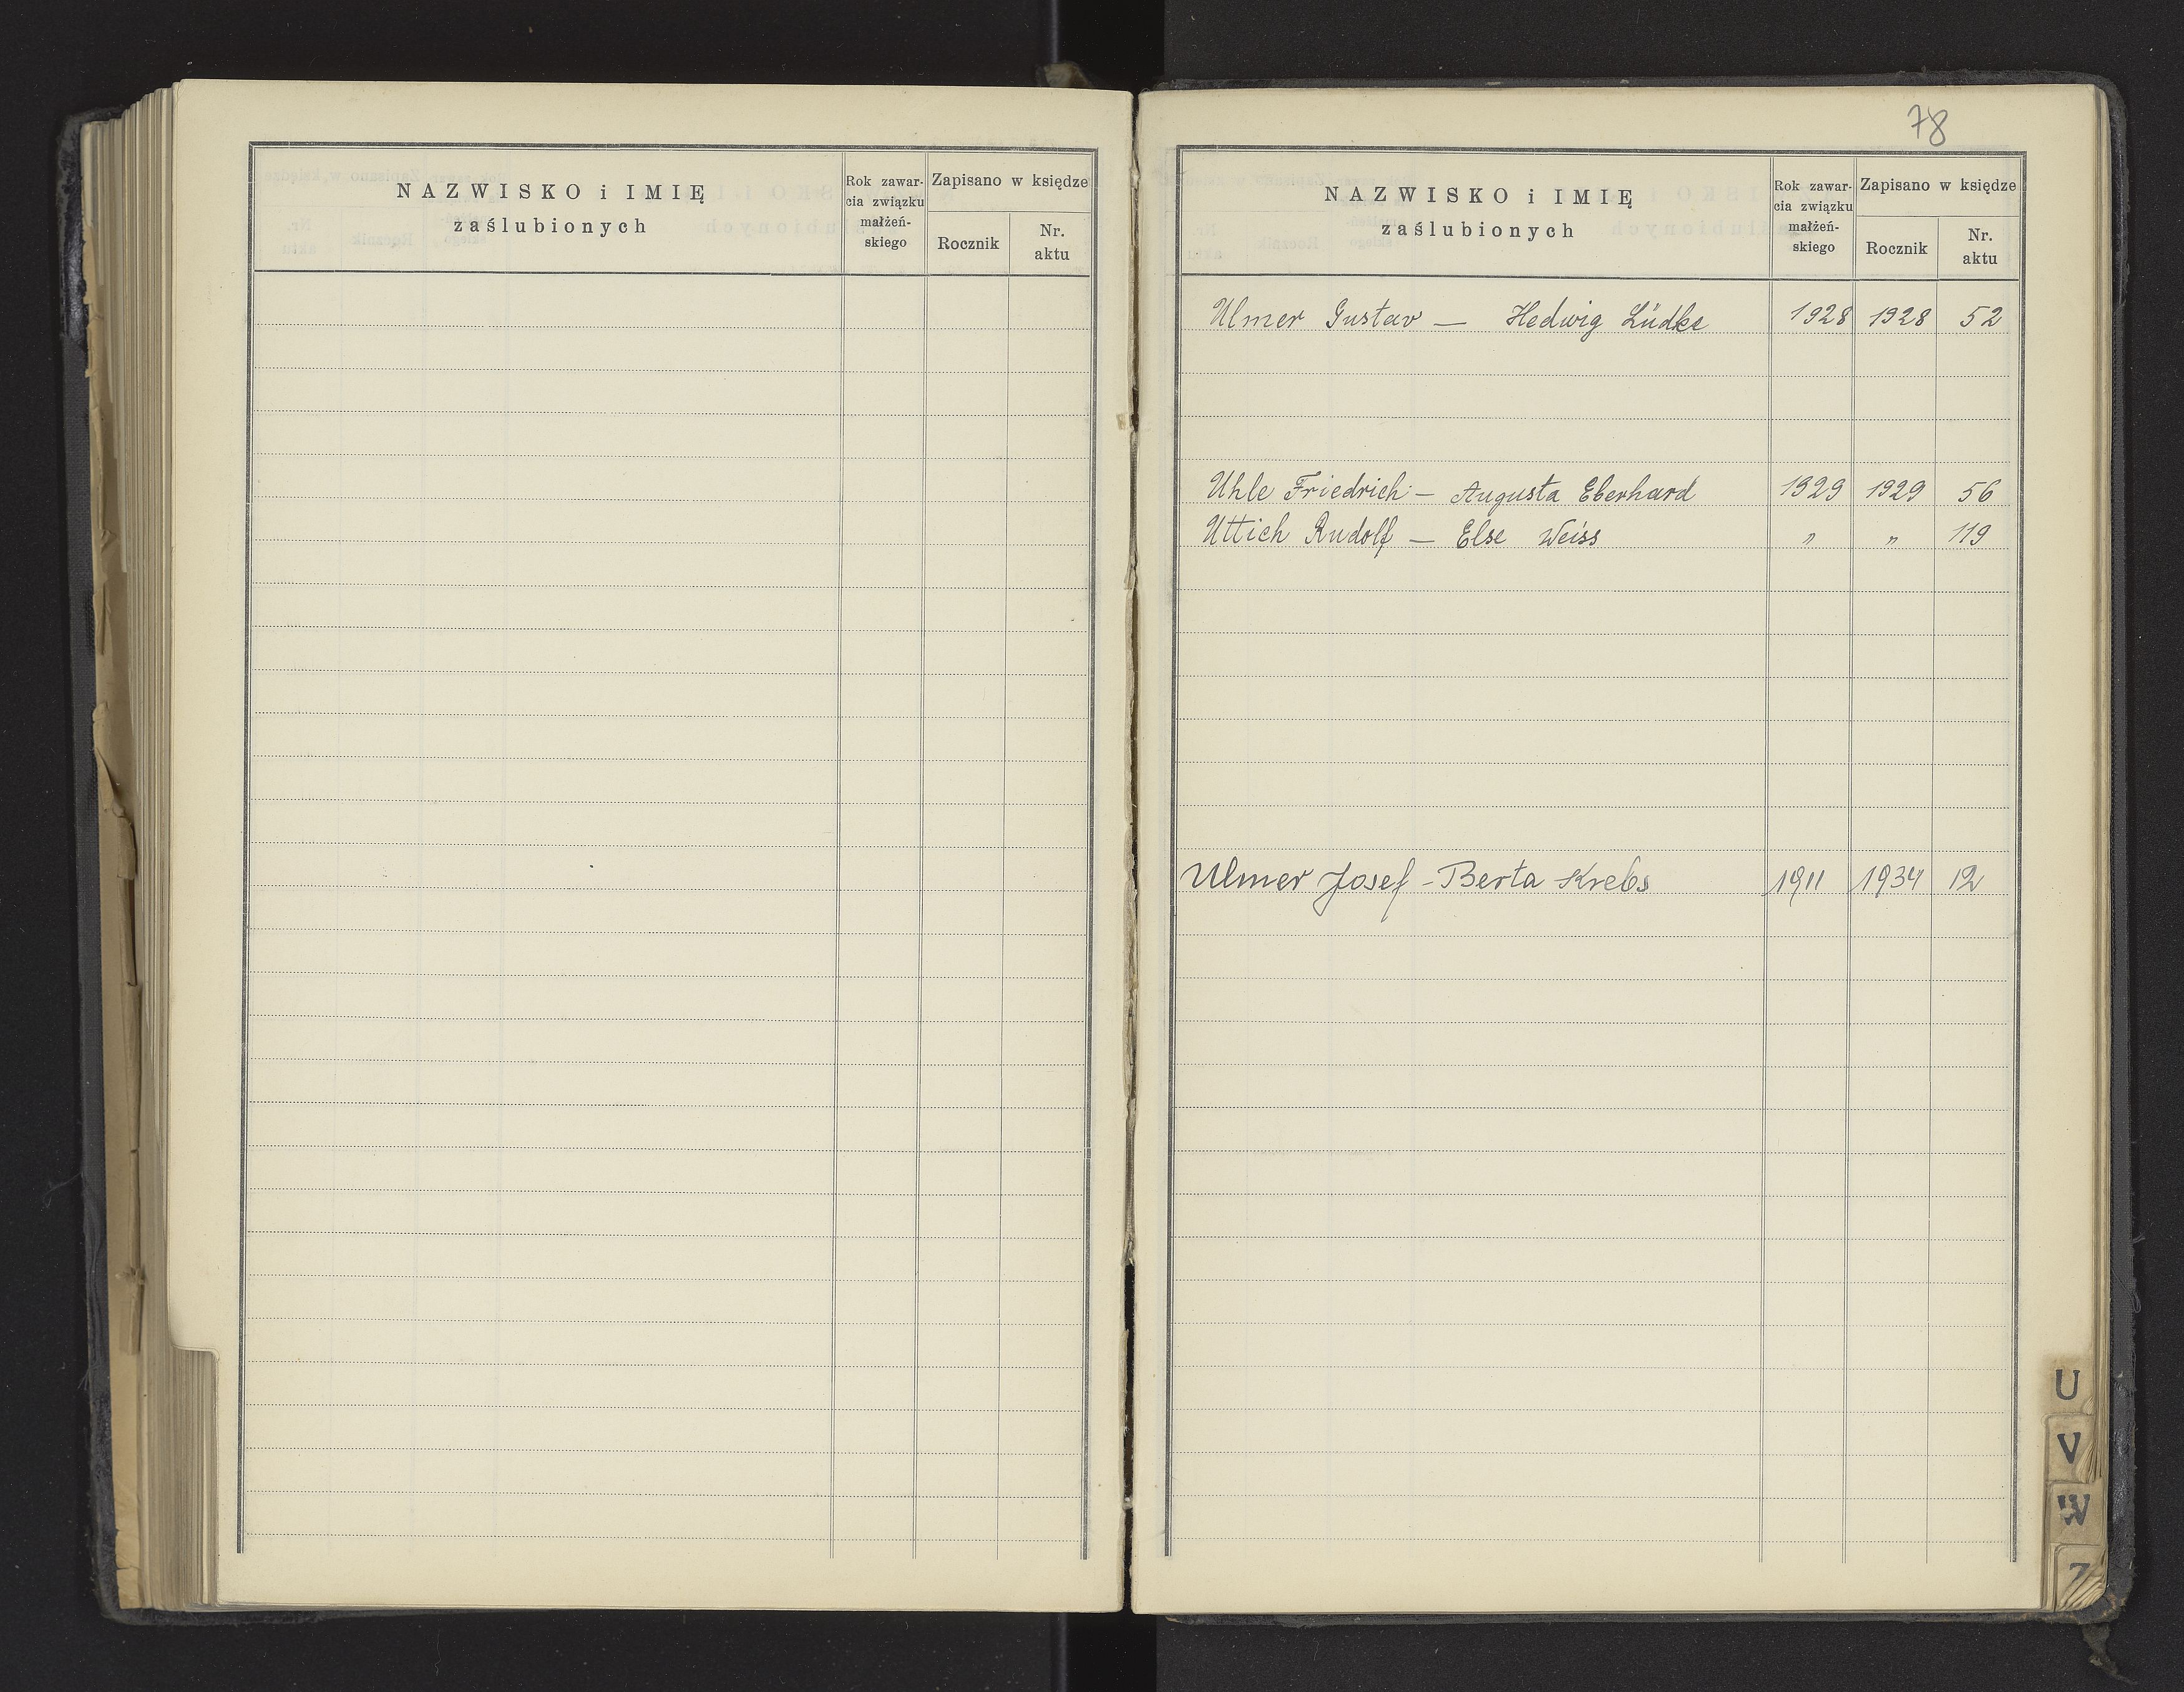 NAZWISKO i IMIĘ
zaślubionych
Rok zawar-
cia związku
małżeń-
skiego
Zapisano w księdze
Rocznik
Nr.
aktu
78
NAZWISKO i IMIĘ
zaślubionych
Rok zawar-
cia związku
małżeń-
skiego
Zapisano w księdze
Rocznik
Nr.
aktu
Ulmer Gustav — Hedwig Lüdke 1928 1928 52
Uhle Friedrich — Augusta Eberhard 1929 1929 56
Uttich Rudolf — Else Weiss " " 119
Ulmer Josef - Berta Krebs 1911 1934 12
U
V
W
Z